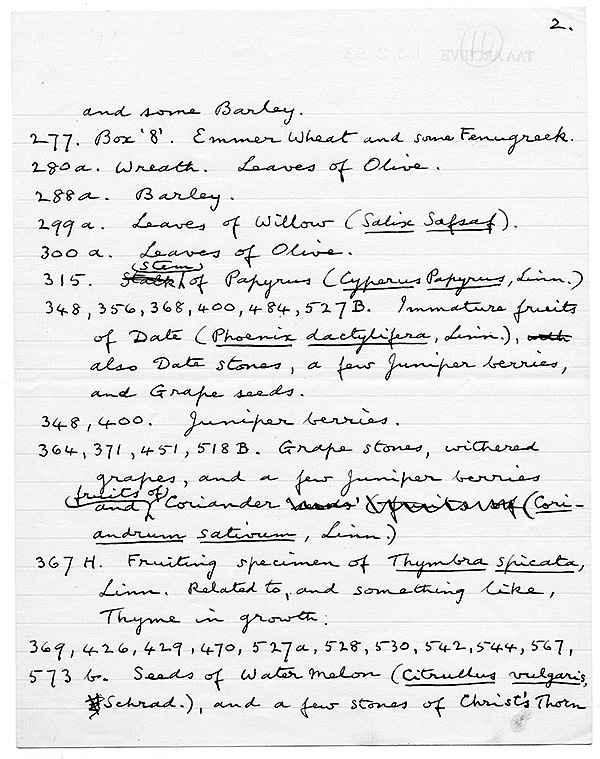 2.
(11)
TAA ARCHIVE 1.3.2.53
and some Barley.
277. Box '8'. Emmer Wheat and some Fenugreek.
280a. Wreath. Leaves of Olive.
288a. Barley.
299a. Leaves of Willow (Salix Safsaf).
300a. Leaves of Olive.
(Stem)
315. Stalk of Papyrus (Cyperus Papyrus, Linn.)
348, 356, 368, 400, 484, 527B. Immature fruits
of Date (Phoenix dactylifera, Linn.), with
also Date stones, a few Juniper berries,
and Grape seeds.
348, 400. Juniper berries.
364, 371, 451, 518B. Grape stones, withered
grapes, and a few Juniper berries
(fruits of)
and Coriander seeds (fruits of (Cori-
andrum sativum, Linn.)
367 H. Fruiting specimen of Thymbra spicata,
Linn. Related to, and something like,
Thyme in growth.
369, 426, 429, 470, 527a, 528, 530, 542, 544, 567,
573 b. Seeds of Water Melon (Citrullus vulgaris,
Schrad.), and a few stones of Christ's Thorn